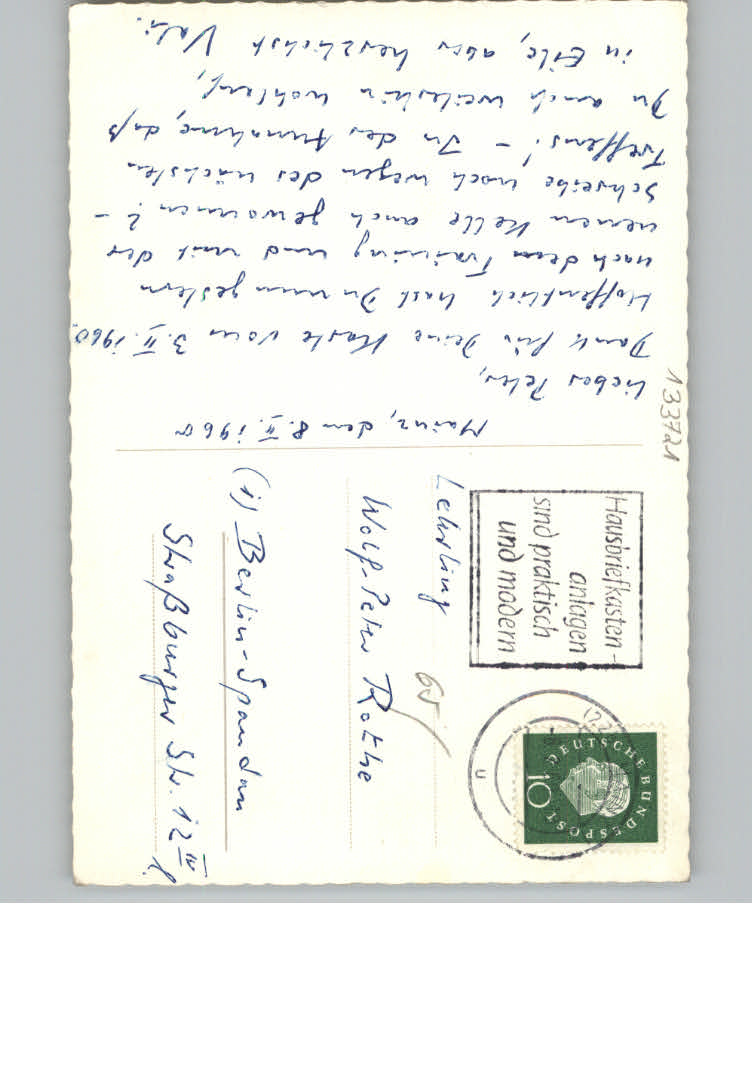 Mainz, den 8. II. 1960
Lieber Peter,
Dank für Deine Karte vom 3. II. 1960.
Hoffentlich hast Du nun gestern
nach dem Training und mit der
neuen Kelle auch gewonnen? -
Schreibe noch wegen des nächsten
Treffens! - In der Annahme, daß
Du auch weiterhin wohlauf,
in Eile, aber herzlichst
133721
Hausbriefkasten-
anlagen
sind praktisch
und modern
DEUTSCHE BUNDESPOST
10
u
Lehrling
65
Wolf-Peter Rothe
(1) Berlin-Spandau
Straßburger Str. 12 IV